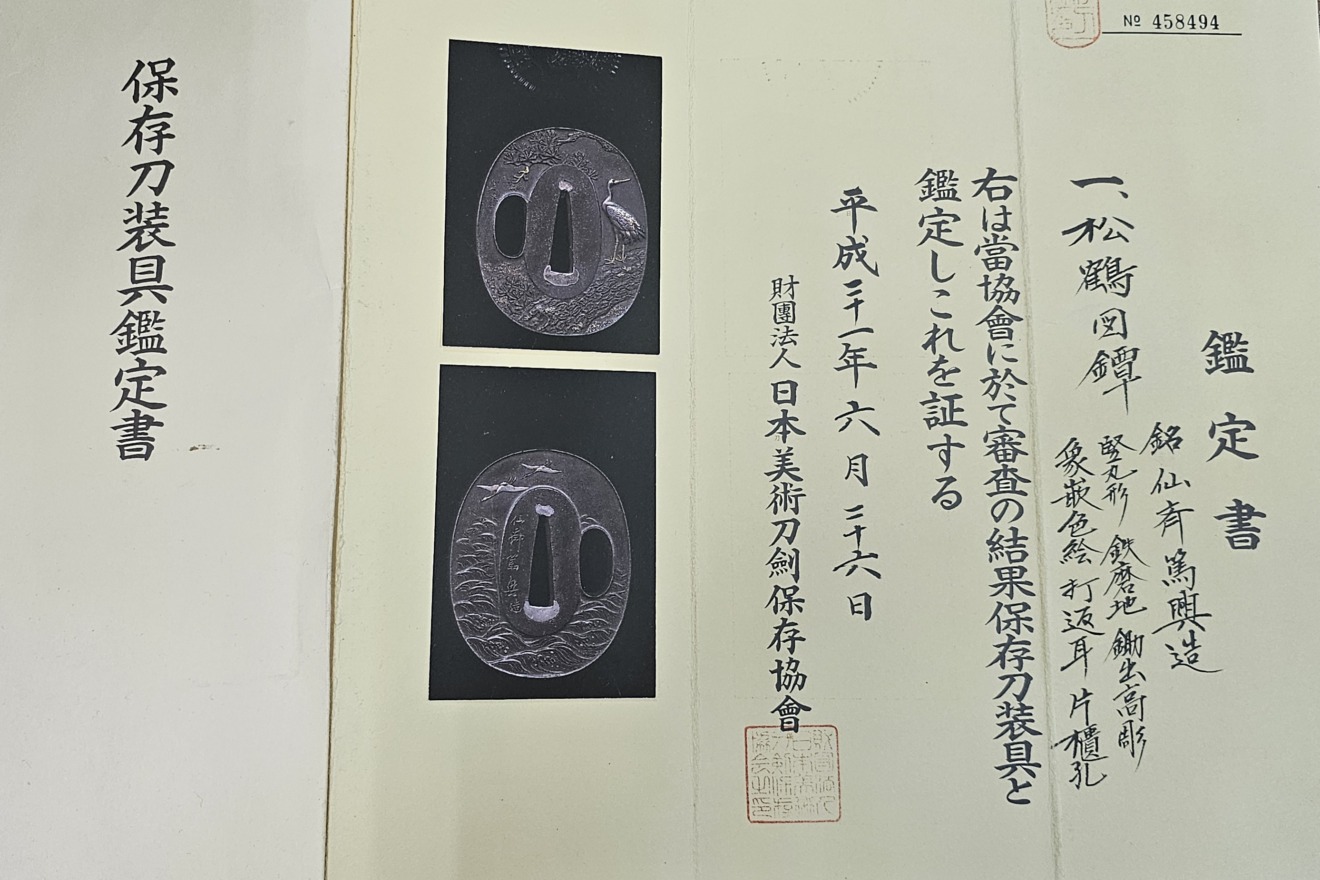 № 458494
鑑定書
一、松鶴図鐔
銘 仙斉篤興造
竪丸形 鉄磨地 鋤出高彫
象嵌色絵 打返耳 片櫃孔
右は當協會に於て審査の結果保存刀装具と
鑑定しこれを証する
平成二十一年六月二十六日
財團法人日本美術刀劍保存協會
保存刀装具鑑定書